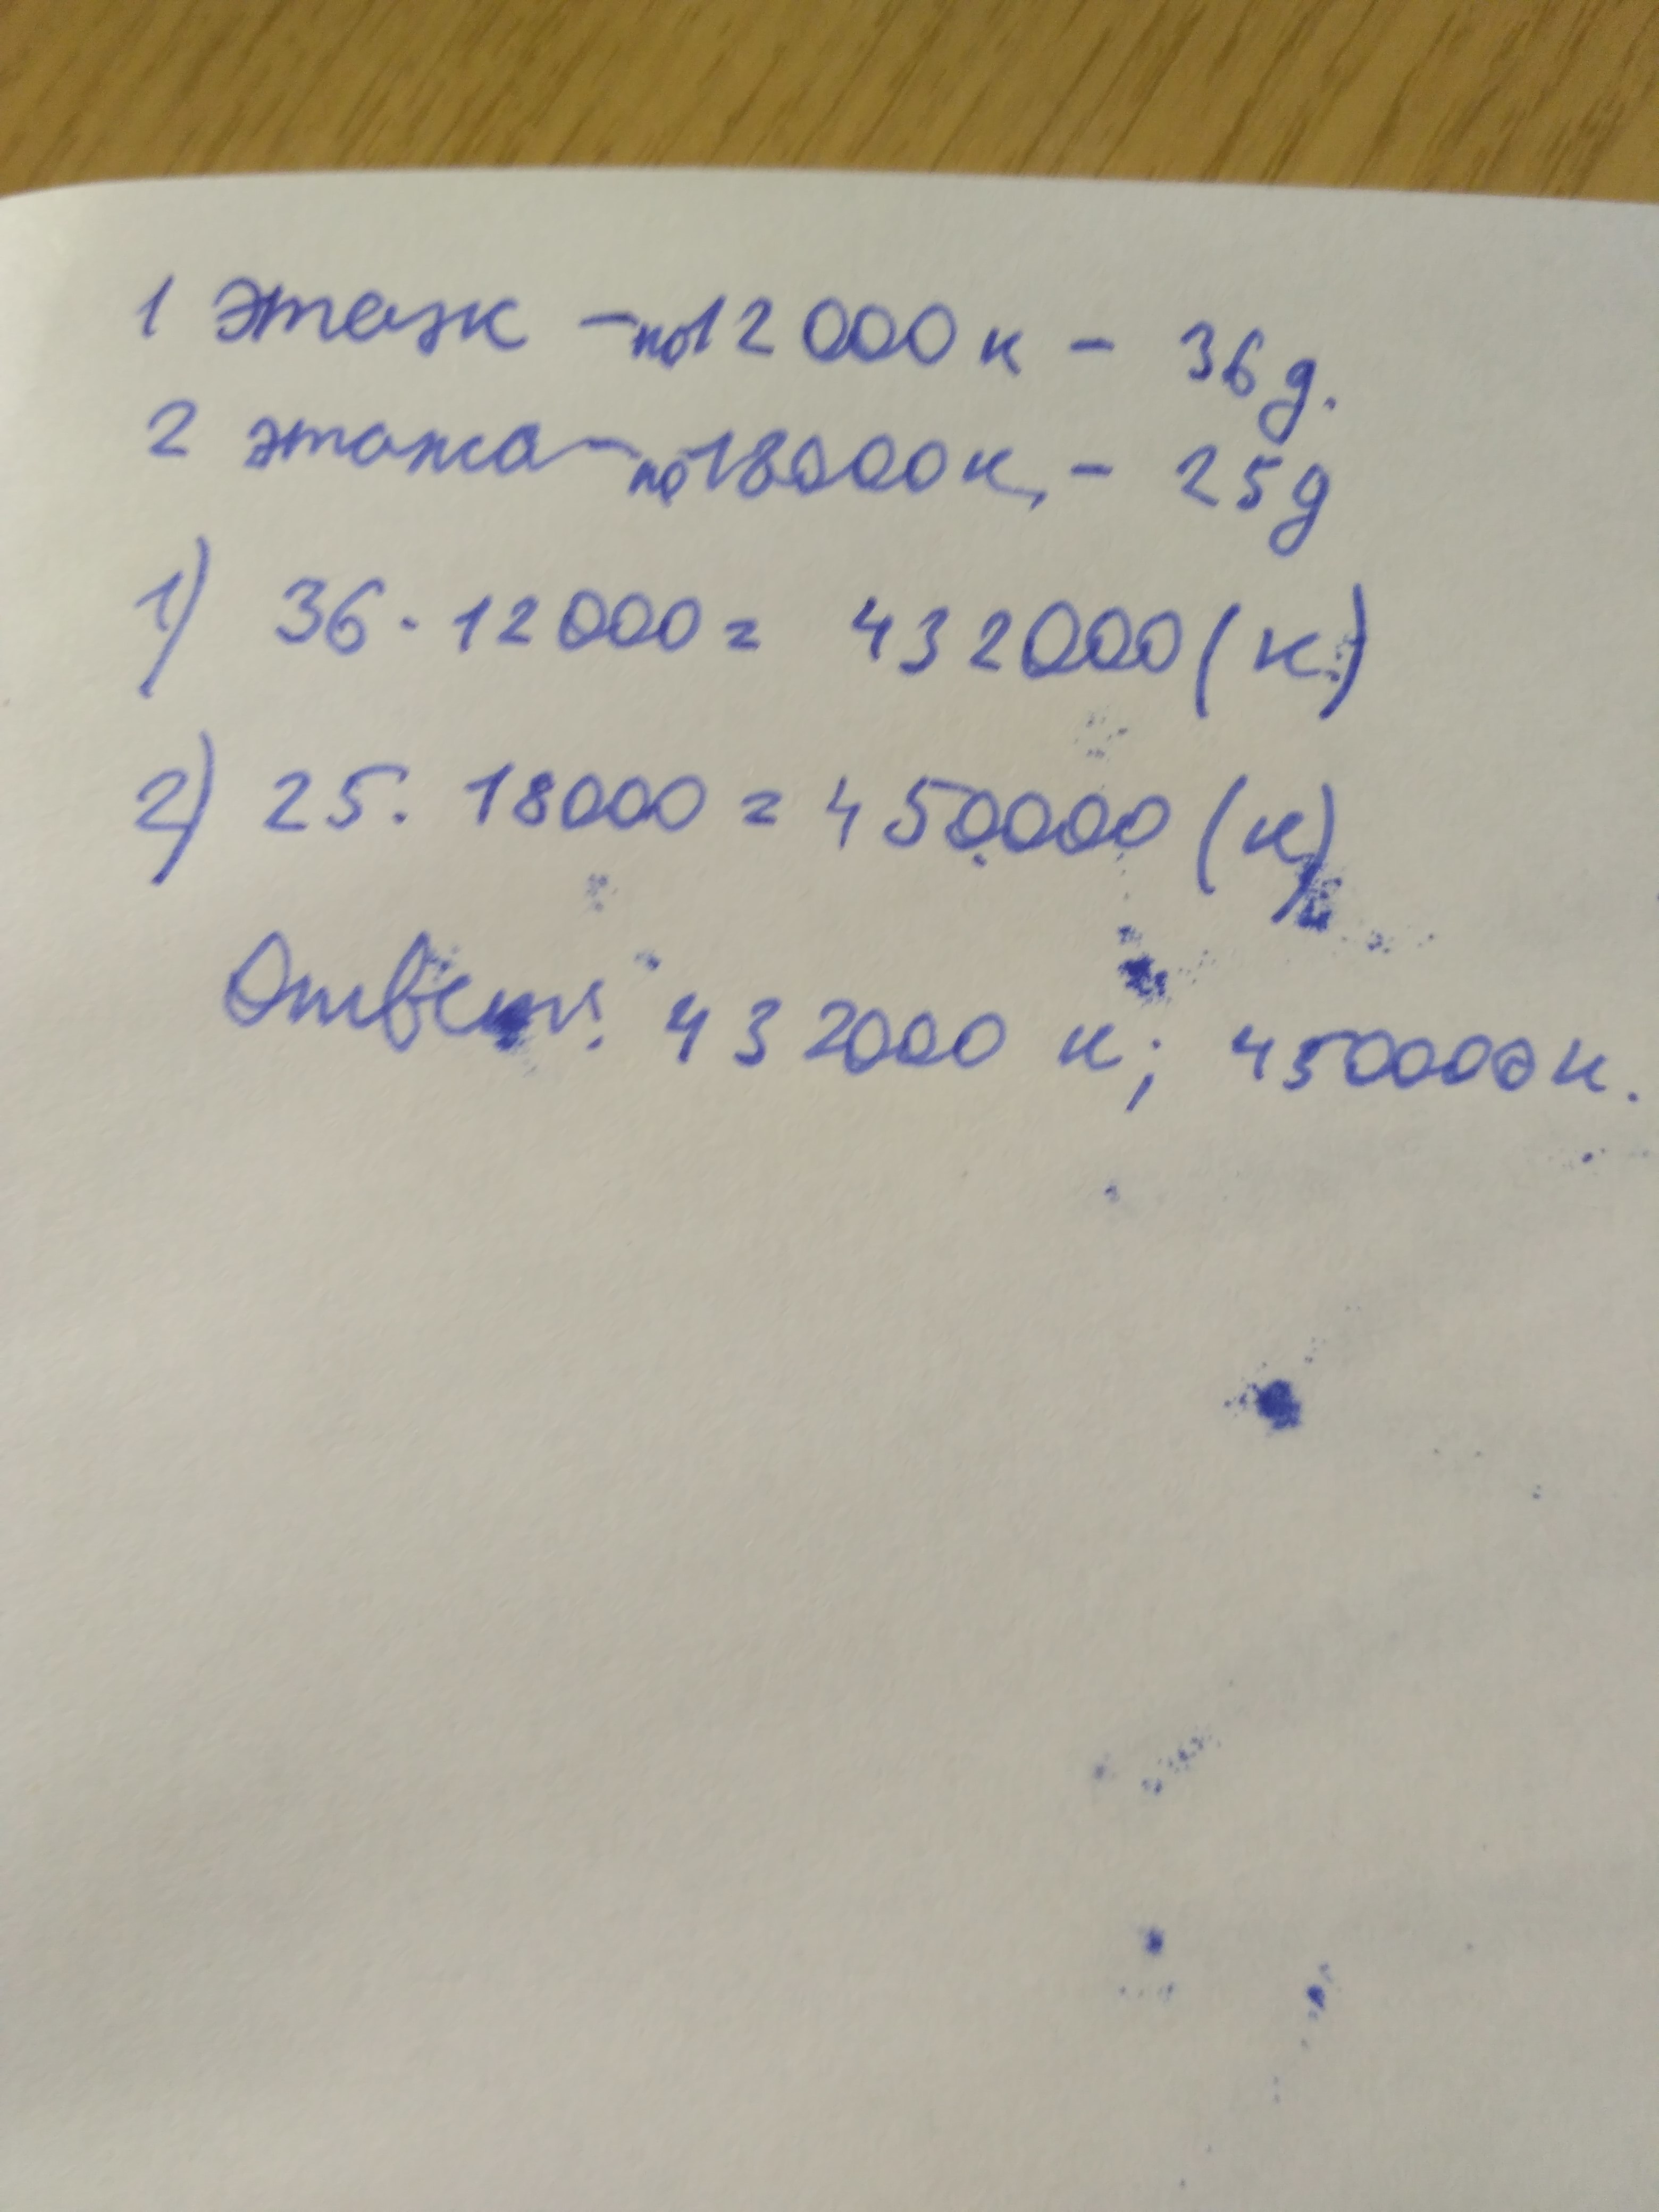 1 этаж - по 12 000 к - 36 д.
2 этажа - по 18000 к. - 25 д
1) 36 · 12 000 = 432000 (к.)
2) 25. 18000 = 450000 (к)
Ответ: 432000 к; 450000 к.